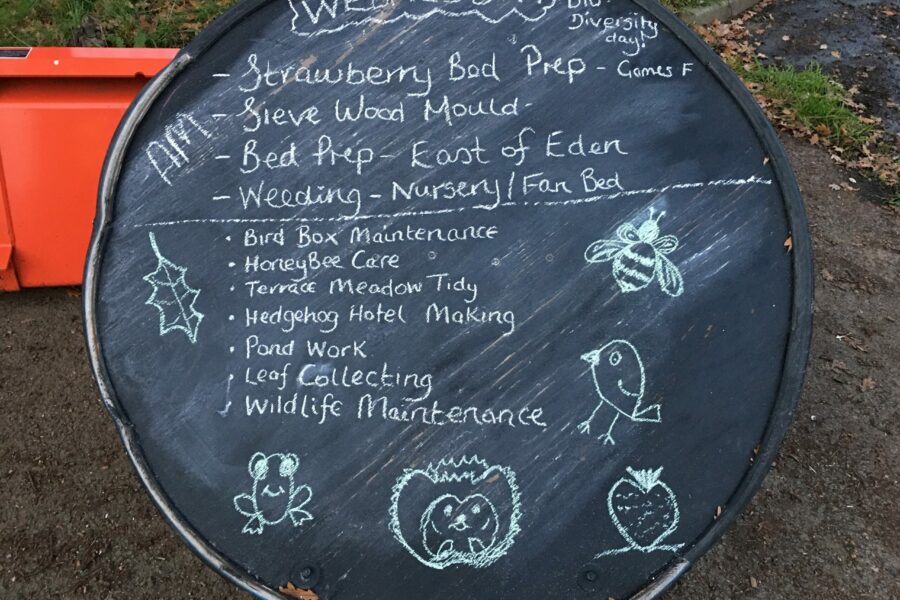 Diversity
day!
- Strawberry Bed Prep - Games F
AM
- Sieve Wood Mould -
- Bed Prep - East of Eden
- Weeding - Nursery / Fan Bed
• Bird Box Maintenance
• HoneyBee Care
• Terrace Meadow Tidy
• Hedgehog Hotel Making
• Pond Work
• Leaf Collecting
• Wildlife Maintenance